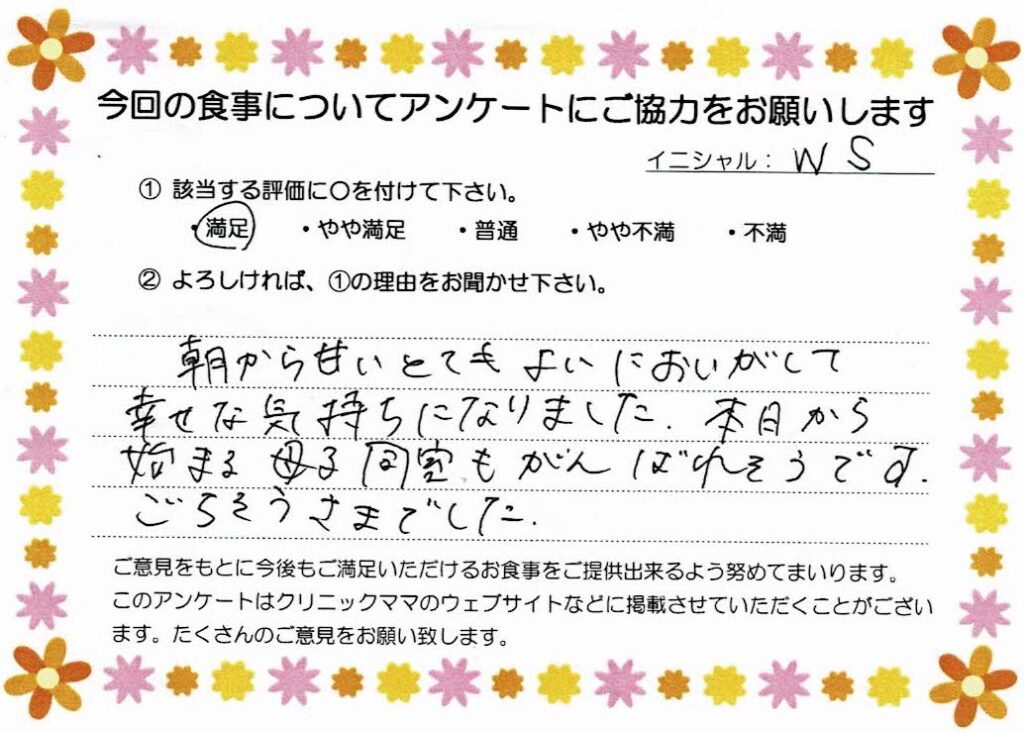 今回の食事についてアンケートにご協力をお願いします
イニシャル: W S
① 該当する評価に〇を付けて下さい。
・満足 ・やや満足 ・普通 ・やや不満 ・不満
② よろしければ、①の理由をお聞かせ下さい。
朝から甘いとてもよいにおいがして
幸せな気持ちになりました. 本日から
始まる母子同室もがんばれそうです.
ごちそうさまでした.
ご意見をもとに今後もご満足いただけるお食事をご提供出来るよう努めてまいります。
このアンケートはクリニックママのウェブサイトなどに掲載させていただくことがござい
ます。たくさんのご意見をお願い致します。